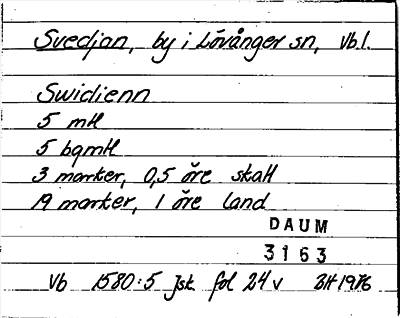 Svedjan, by i Lövånger sn, Vb l.
Swidienn
5 mtl
5 bgmtl
3 marker, 0,5 öre skatt
19 marker, 1 öre land
DAUM
3163
Vb 1580:5 Jsk fol 24 v BH 1976